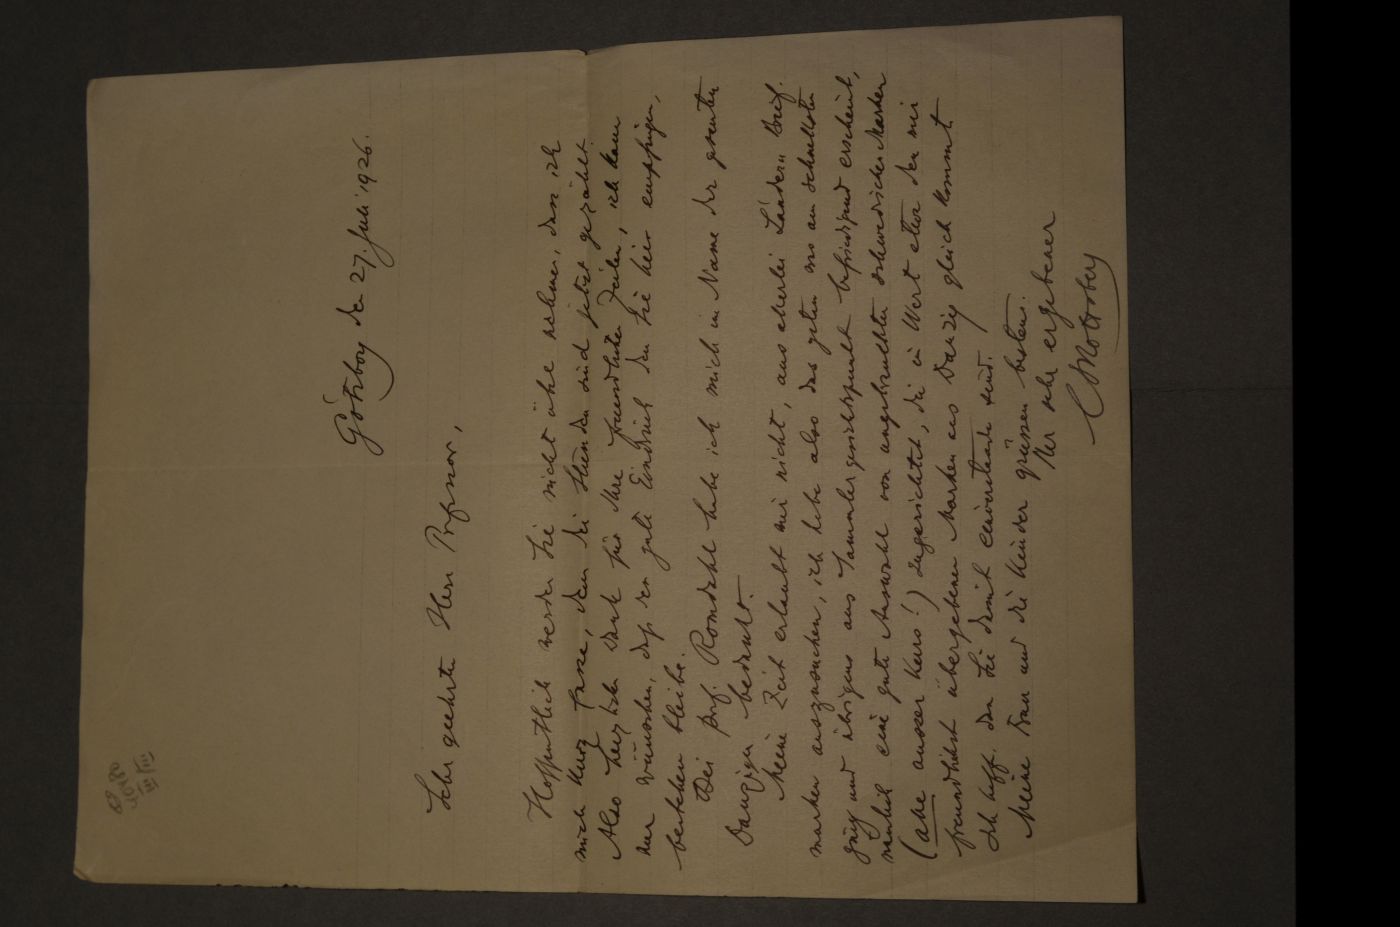 Göteborg den 27. Juli 1926.
Sehr geehrter Herr Professor,
Hoffentlich werden Sie nicht übel nehmen, dass ich
mich kurz fasse, denn die Stunden sind jetzt gezählt.
Also herzlichen Dank für Ihre freundlichen Zeilen, ich kann
nur wünschen, dass der gute Eindruck den Sie hier empfingen,
bestehen bleibe.
Bei Prof. Romdahl habe ich mich im Name der
Danziger bedankt.
Meine Zeit erlaubt mir nicht, aus allerlei Ländern Brief-
marken auszusuchen, ich habe also das getan was am schnellsten
ging und übrigens aus Sammlergesichtspunkt befriedigend erscheint,
nämlich eine gute Auswahl von ungebrauchten schwedischen Marken
(alle ausser Kurs!) zugerichtet, die in Wert etwa den mir
freundlichst übergebenen Marken aus Danzig gleich kommt
Ich hoffe dass Sie damit einverstanden sind.
Meine Frau und die Kinder grüssen bestens.
Ihr sehr ergebener